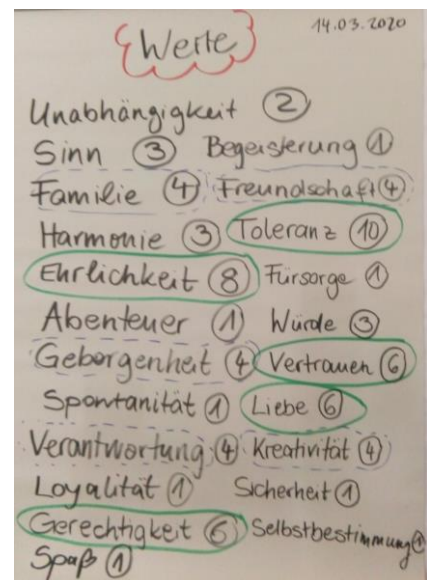 14.03.2020
Werte
Unabhängigkeit 2
Sinn 3 Begeisterung 1
Familie 4 Freundschaft 4
Harmonie 3 Toleranz 10
Ehrlichkeit 8 Fürsorge 1
Abenteuer 1 Würde 3
Geborgenheit 4 Vertrauen 6
Spontanität 1 Liebe 6
Verantwortung 4 Kreativität 4
Loyalität 1 Sicherheit 1
Gerechtigkeit 6 Selbstbestimmung 1
Spaß 1